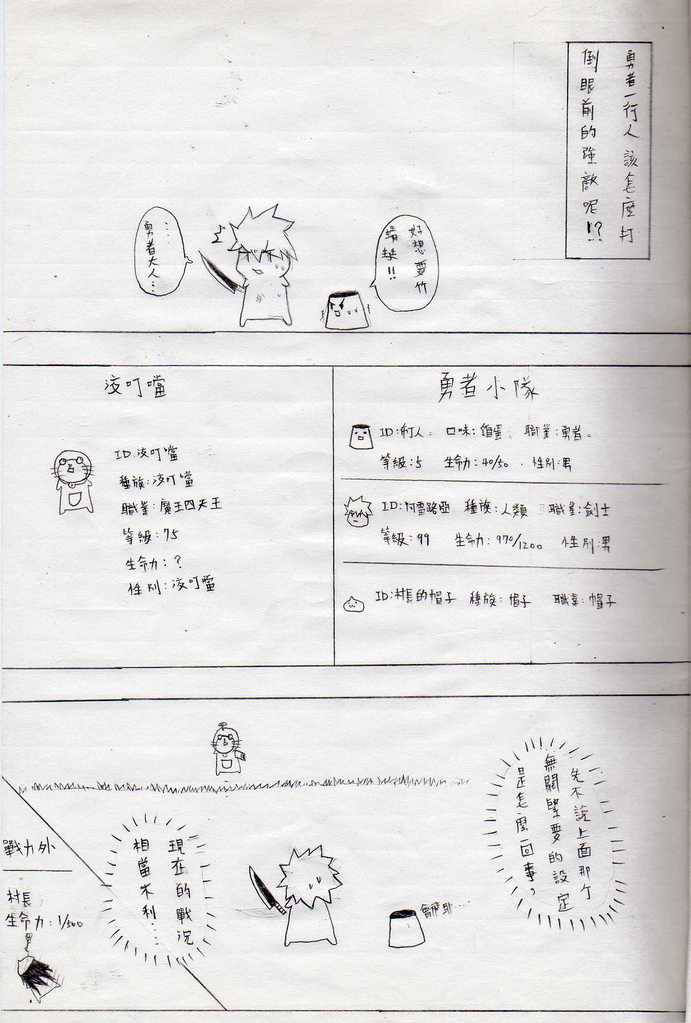 勇者一行人該怎麼打
倒眼前的強敵呢!?
好想要竹
蜻蜓!!
....
勇者大人...
勇者小隊
ID:布丁人。 口味:雞蛋、 職業:勇者。
等級:5 生命力:40/50. 性別:男
ID:阿雪路亞 種族:人類 職業:劍士
等級:99 生命力:970/1200 性別:男
ID:村長的帽子 種族:帽子 職業:帽子
哆叮噹
ID:哆叮噹
種族:哆叮噹
職業:魔王四天王
等級:75
生命力:?
性別:哆叮噹
先不說上面那個
無關緊要的設定
是怎麼回事?
現在的戰況
相當不利...
戰力外
村長
生命力:1/500